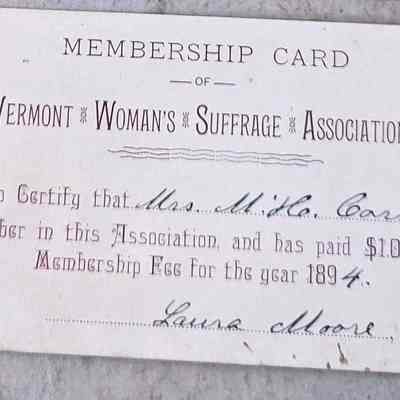 MEMBERSHIP CARD
— OF —
VERMONT WOMAN'S SUFFRAGE ASSOCIATION
Certify that Mrs. M. H.
in this Association, and has paid $1.0
Membership Fee for the year 1894.
Laura Moore,